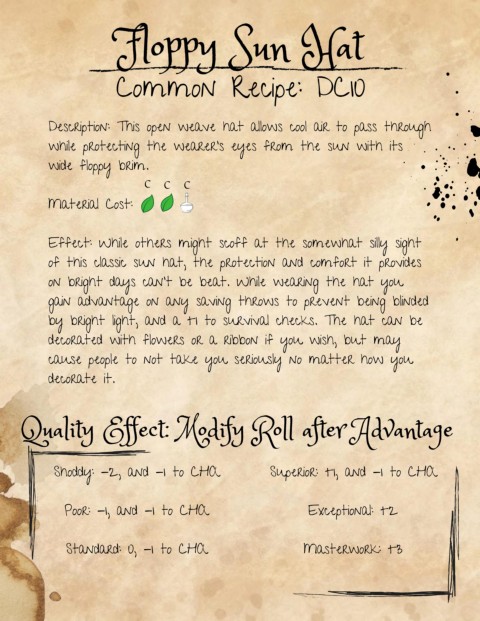 Floppy Sun Hat
Common Recipe: DC10
Description: This open weave hat allows cool air to pass through
while protecting the wearer's eyes from the sun with its
wide floppy brim.
C C C
Material Cost:
Effect: While others might scoff at the somewhat silly sight
of this classic sun hat, the protection and comfort it provides
on bright days can't be beat. While wearing the hat you
gain advantage on any saving throws to prevent being blinded
by bright light, and a +1 to survival checks. The hat can be
decorated with flowers or a ribbon if you wish, but may
cause people to not take you seriously no matter how you
decorate it.
Quality Effect: Modify Roll after Advantage
Shoddy: -2, and -1 to CHA Superior: +1, and -1 to CHA
Poor: -1, and -1 to CHA Exceptional: +2
Standard: 0, -1 to CHA Masterwork: +3